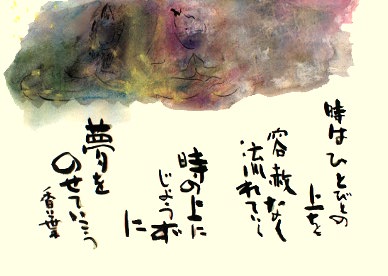 時はひとびとの
上を
容赦なく
流れていく
時の上に
じょうず
に
夢を
のせていこう
香葉